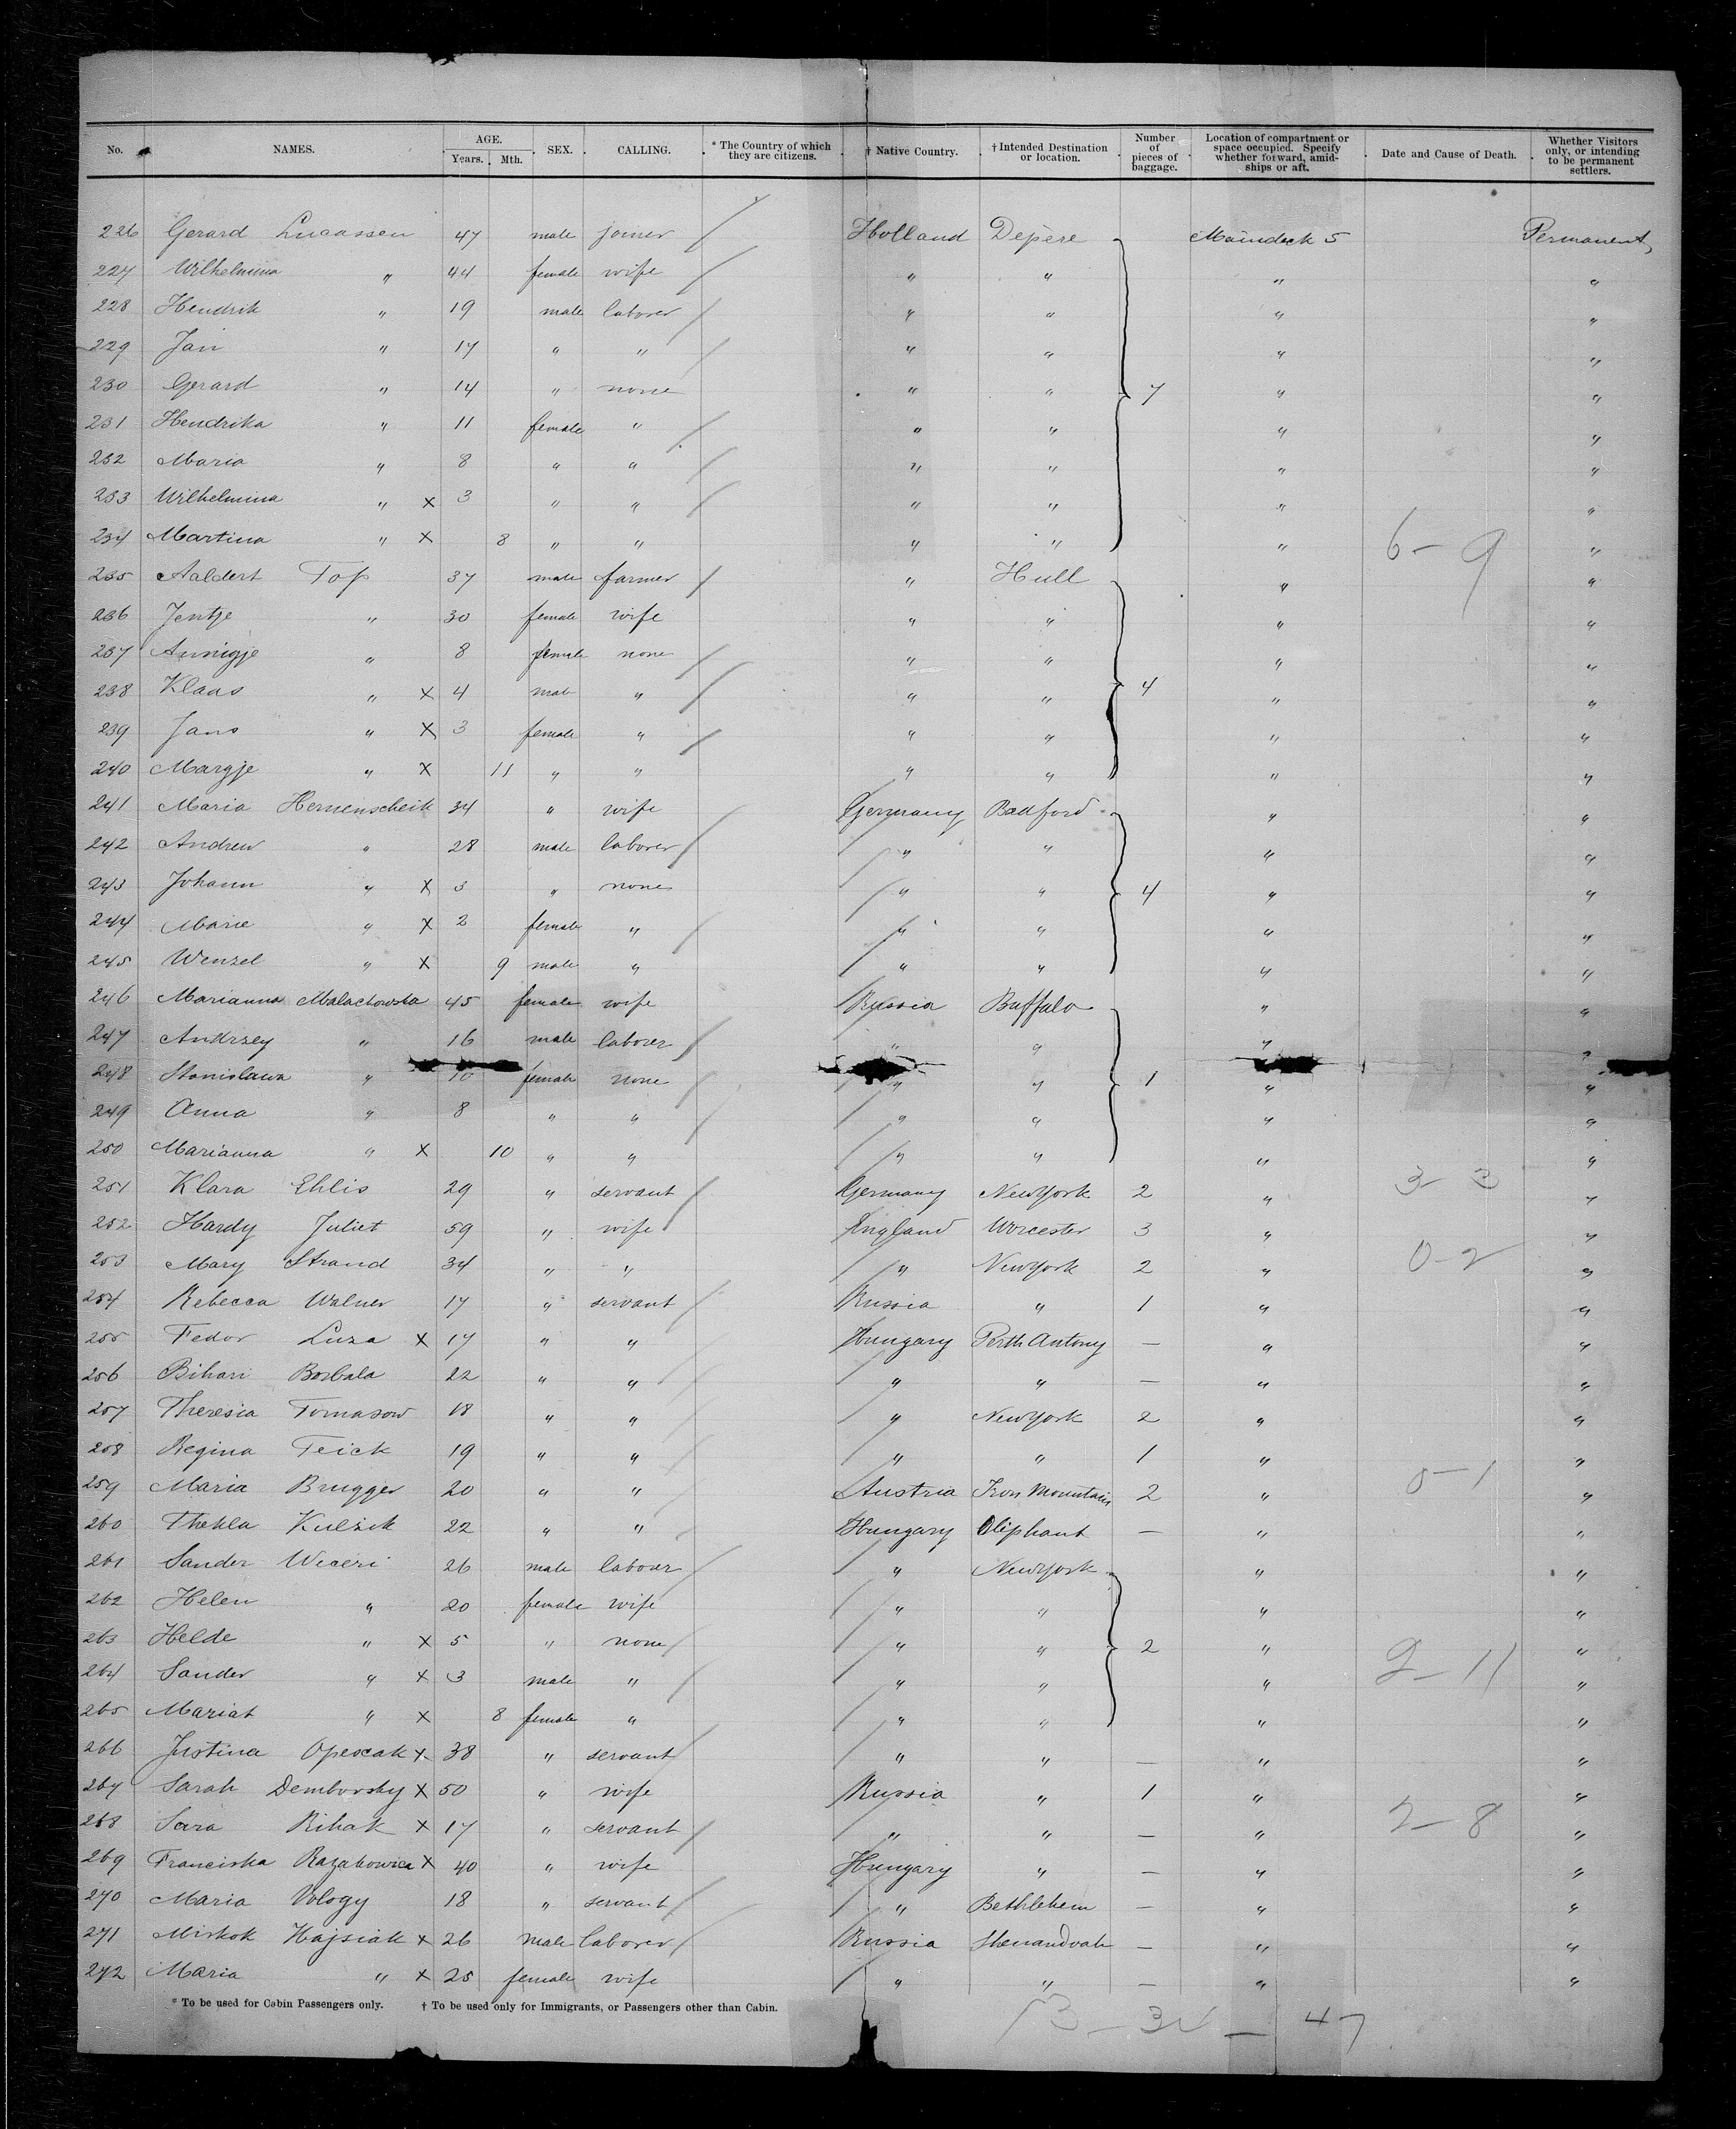 No. NAMES. AGE. Years. Mth. SEX. CALLING. * The Country of which they are citizens. † Native Country. † Intended Destination or location. Number of pieces of baggage. Location of compartment or space occupied. Specify whether forward, amidships or aft. Date and Cause of Death. Whether Visitors only, or intending to be permanent settlers.
226 Gerard Lucassen 47 male joiner Holland Depere Maindeck 5 Permanent
227 Wilhelmina " 44 female wife " " " "
228 Hendrik " 19 male laborer " " " "
229 Jan " 17 " " " " " "
230 Gerard " 14 " none " " 7 " "
231 Hendrika " 11 female " " " " "
232 Maria " 8 " " " " " "
233 Wilhelmina " x 3 " " " " " "
234 Martina " x 8 " " " " " 6-9 "
235 Aaldert Top 37 male farmer " Hull " "
236 Jentje " 30 female wife " " " "
237 Annigje " 8 female none " " " "
238 Klaas " x 4 male " " " 4 " "
239 Jans " x 3 female " " " " "
240 Margje " x 11 " " " " " "
241 Maria Hernenscheik 34 " wife Germany Badford " "
242 Andrew " 28 male laborer " " " "
243 Johann " x 3 " none " " 4 " "
244 Marie " x 2 female " " " " "
245 Wenzel " x 9 male " " " " "
246 Marianna Malachowska 45 female wife Russia Buffalo " "
247 Andrzey " 16 male laborer " " " "
248 Stanislawa " 10 female none " " 1 " "
249 Anna " 8 " " " " " "
250 Marianna " x 10 " " " " " "
251 Klara Ehlis 29 " servant Germany NewYork 2 " 3-3 "
252 Hardy Juliet 59 " wife England Worcester 3 " "
253 Mary Strand 34 " " " NewYork 2 " 0-2 "
254 Rebecca Walner 17 " servant Russia " 1 " "
255 Fedor Luza x 17 " " Hungary Perth Antony — " "
256 Bihari Borbala 22 " " " " — " "
257 Theresia Tomasow 18 " " " NewYork 2 " "
258 Regina Teick 19 " " " " 1 " "
259 Maria Brugger 20 " " Austria Iron Mountain 2 " 0-1 "
260 Thekla Kulzik 22 " " Hungary Oliphant — " "
261 Sander Weceri 26 male labour " NewYork " "
262 Helen " 20 female wife " " " "
263 Helde " x 5 " none " " 2 " "
264 Sander " x 3 male " " " " 2-11 "
265 Mariat " x 8 female " " " " "
266 Justina Opescak x 38 " servant " " — " "
267 Sarah Dembovsky x 50 " wife Russia " 1 " "
268 Sara Rihak x 17 " servant " " — " 2-8 "
269 Franciska Razakowica x 40 " wife Hungary " — " "
270 Maria Vology 18 " servant " Bethlehem — " "
271 Mirkok Hajsiak x 26 male laborer Russia Shenandoah — " "
272 Maria " x 25 female wife " " — " "
* To be used for Cabin Passengers only. † To be used only for Immigrants, or Passengers other than Cabin.